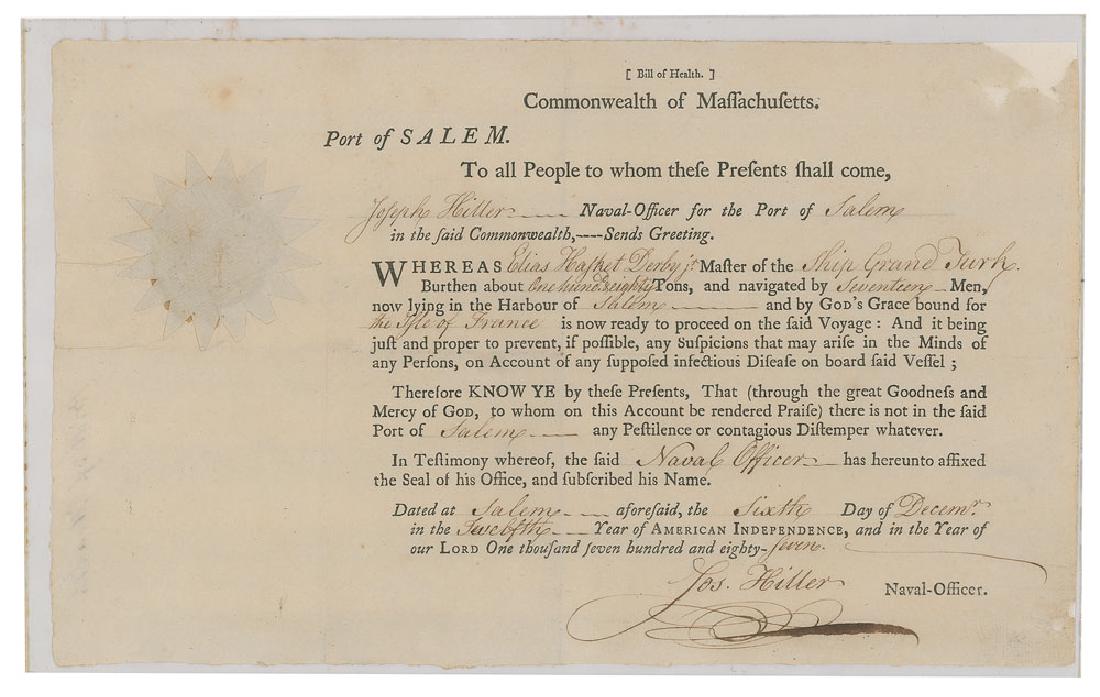 [ Bill of Health. ]
Commonwealth of Maſſachuſetts.
Port of SALEM.
To all People to whom theſe Preſents ſhall come,
Joseph Hiller Naval-Officer for the Port of Salem
in the ſaid Commonwealth,----Sends Greeting.
WHEREAS Elias Hasket Derby jr. Maſter of the Ship Grand Turk.
Burthen about One hund. eighty Tons, and navigated by Seventeen Men,
now lying in the Harbour of Salem and by GOD'S Grace bound for
the Isle of France is now ready to proceed on the ſaid Voyage: And it being
juſt and proper to prevent, if poſſible, any Suſpicions that may ariſe in the Minds of
any Perſons, on Account of any ſuppoſed infectious Diſeaſe on board ſaid Veſſel;
Therefore KNOW YE by theſe Preſents, That (through the great Goodneſs and
Mercy of GOD, to whom on this Account be rendered Praiſe) there is not in the ſaid
Port of Salem any Peſtilence or contagious Diſtemper whatever.
In Teſtimony whereof, the ſaid Naval Officer has hereunto affixed
the Seal of his Office, and ſubſcribed his Name.
Dated at Salem aforeſaid, the Sixth Day of Decemr.
in the Twelfth Year of AMERICAN INDEPENDENCE, and in the Year of
our LORD One thouſand ſeven hundred and eighty-seven.
Jos. Hiller Naval-Officer.